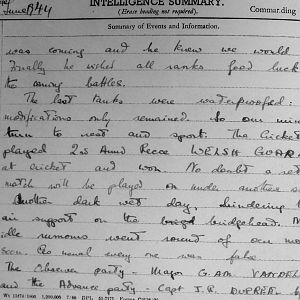 June 1944
INTELLIGENCE SUMMARY.
(Erase heading not required).
Commanding
Summary of Events and Information.
was coming and he knew we would
Finally he wished all ranks good luck
the coming battles.
The last tanks were waterproofed:
modifications only remained. So our min
turn to rest and sport: The Cricket
played 2nd Armd Recce WELSH GUAR
at Cricket and won. No doubt a ret
match will be played on under another s
Another dark wet day. hindering
air support on the bridgehead.
idle rumours went round of our mov
soon. As usual every one was false
The Observer party - Major G.A.M. VANDEL
and the Advance party - Capt J.R.